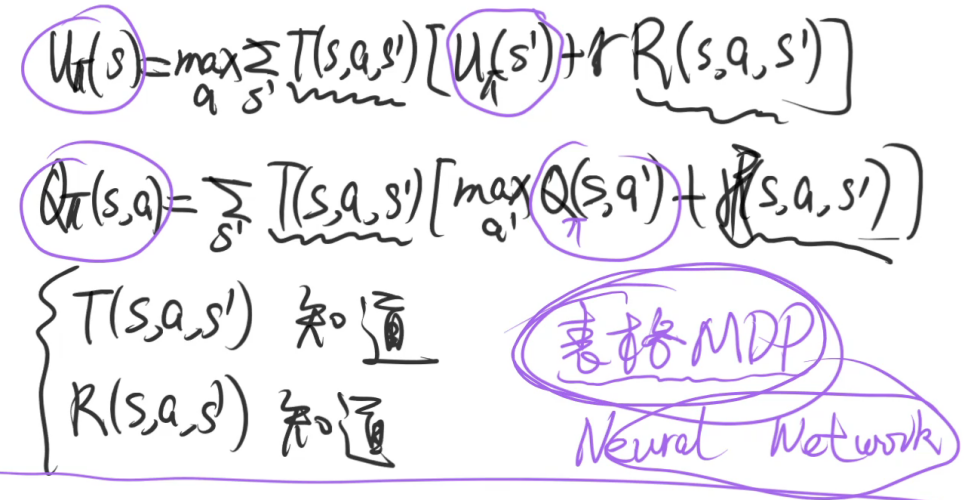 U_π(s)=max_a Σ_s' T(s,a,s')[U_π(s')+rR(s,a,s')]
Q_π(s,a)=Σ_s' T(s,a,s')[max_a' Q_π(s,a')+ (s,a,s')]
T(s,a,s') 知道
R(s,a,s') 知道
表格MDP
Neural Network